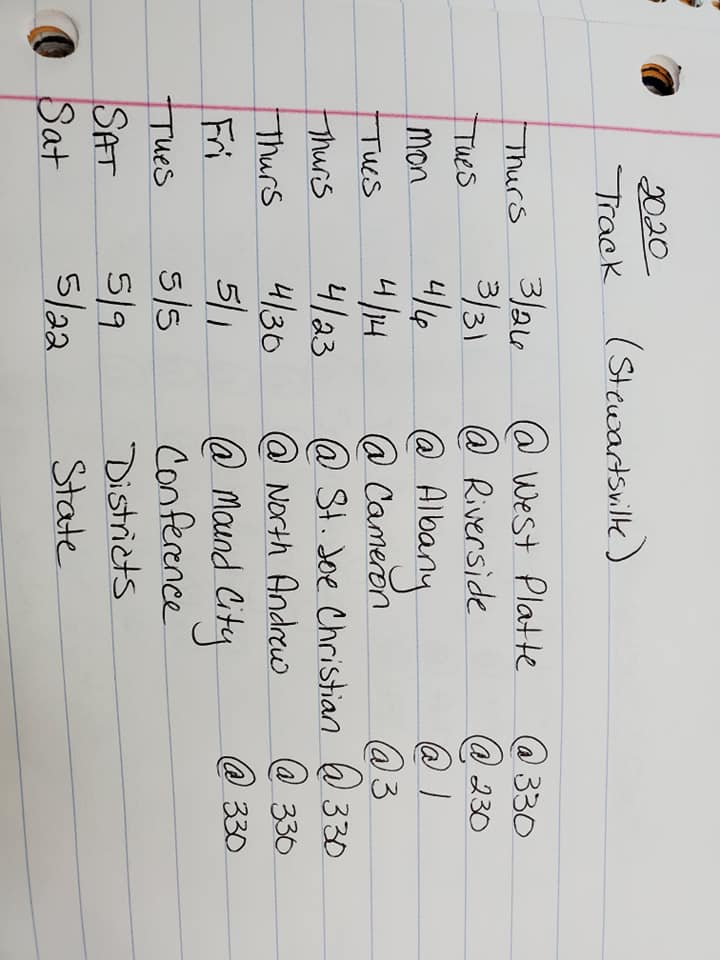 2020
Track (Stewartsville)
Thurs 3/26 @ West Platte @ 330
Tues 3/31 @ Riverside @ 230
Mon 4/6 @ Albany @ 1
Tues 4/14 @ Cameron @ 3
Thurs 4/23 @ St. Joe Christian @ 330
Thurs 4/30 @ North Andrew @ 330
Fri 5/1 @ Mound City @ 330
Tues 5/5 Conference
SAT 5/9 Districts
Sat 5/22 State